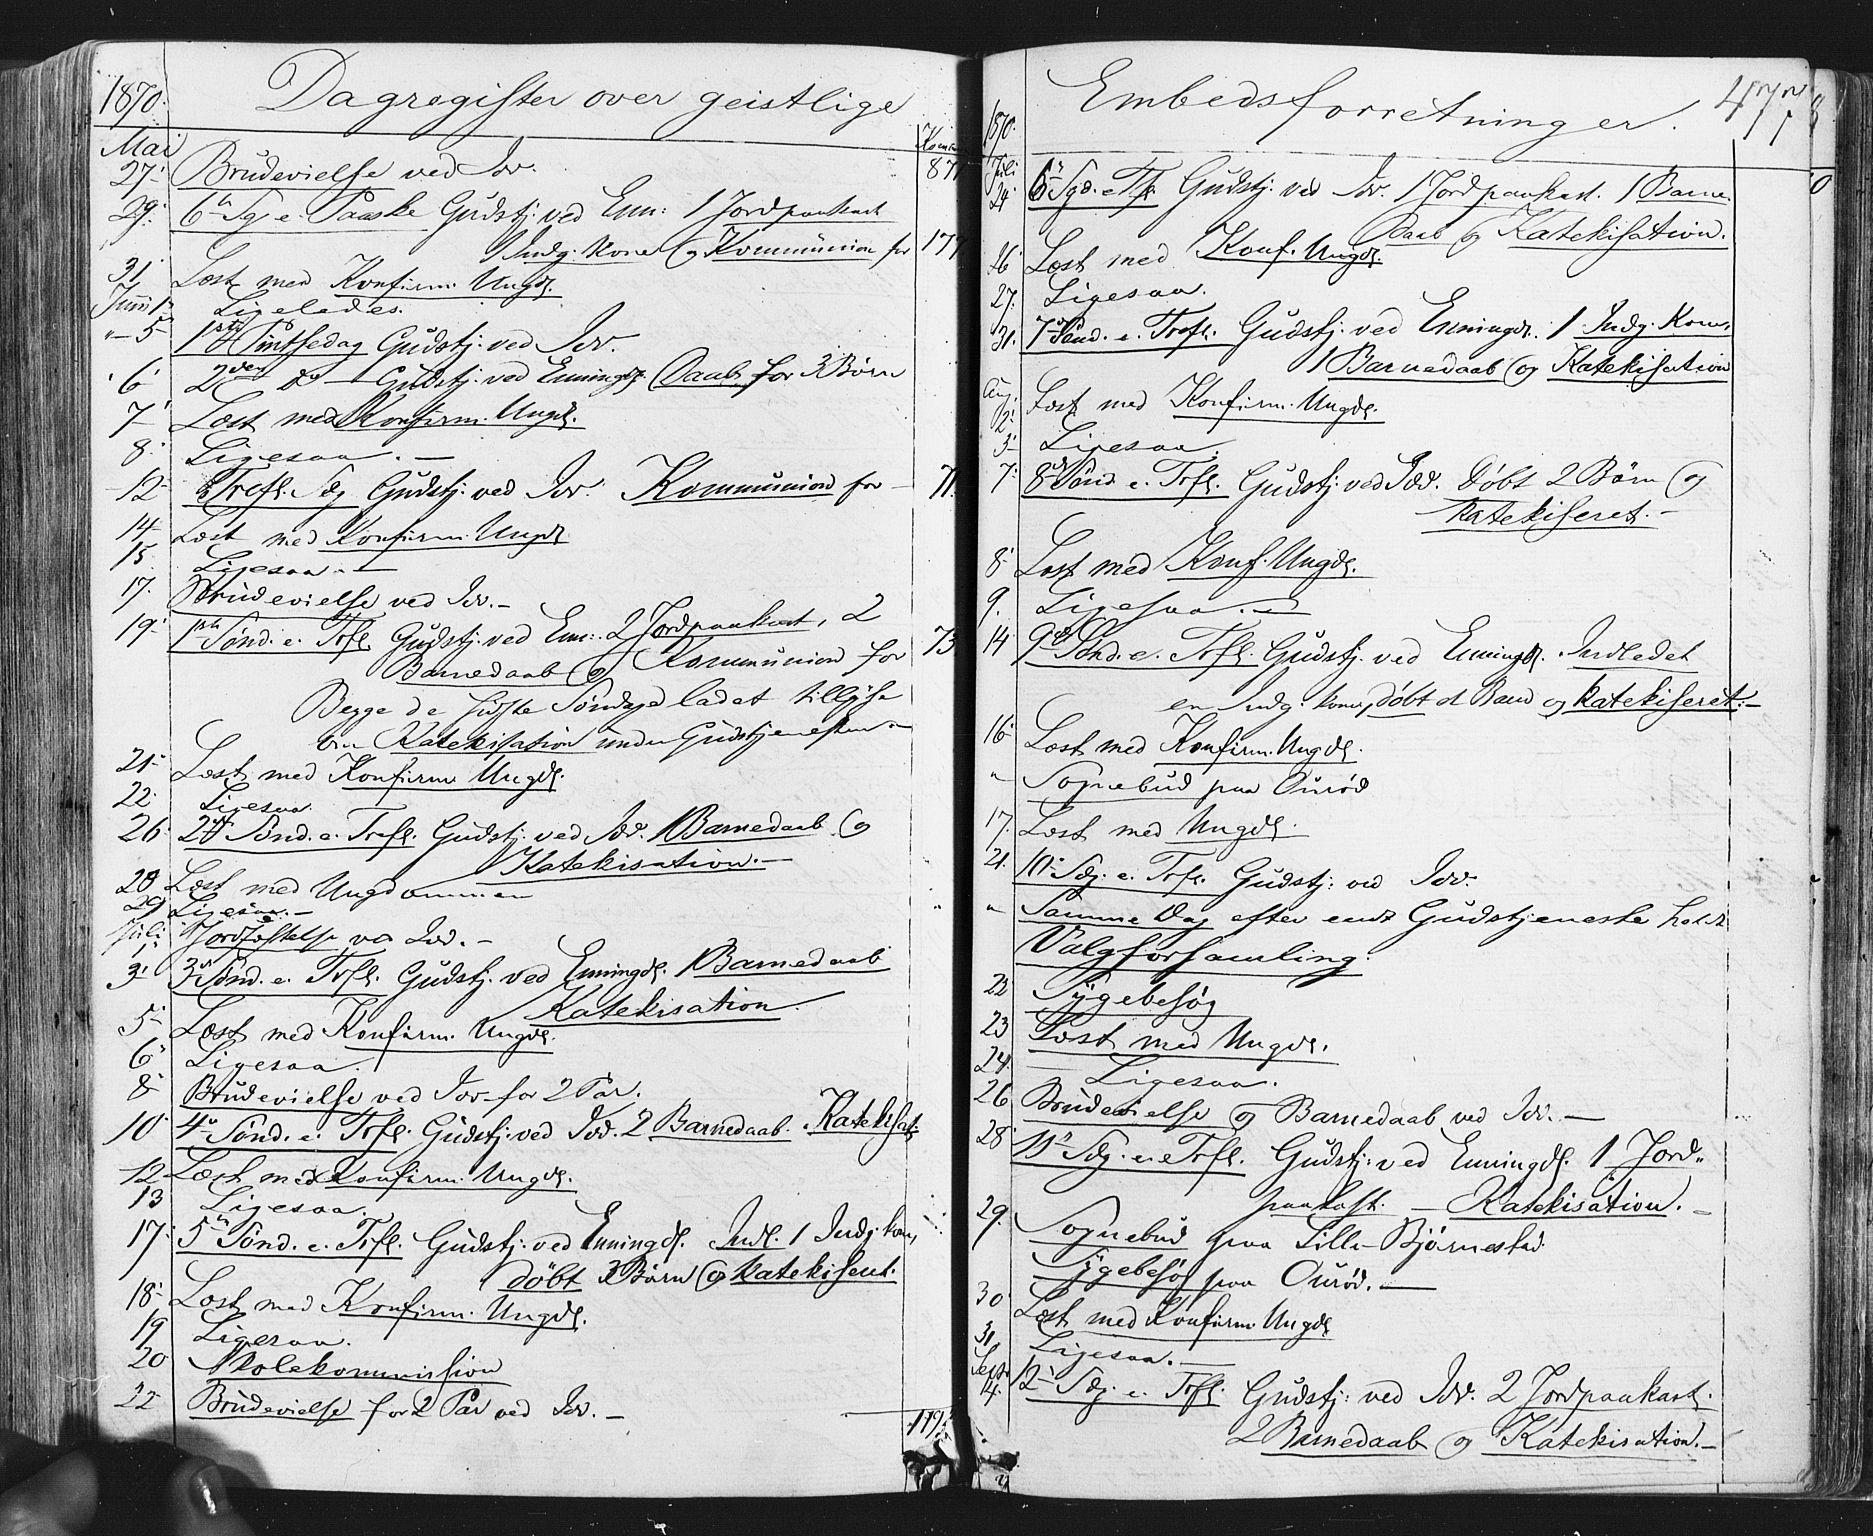 1870. Dagregister over geistlige
Mai
27. Brudevielse ved Idd. 87
29. 6te Sg. e. Paaske Gudstj. ved Enn: 1 Jordpaakast
1 Indg. Kone og Kommunion for 177
31 Læst med Konfirm. Ungd.
Juni 1. Ligeledes.
" 5 1ste Pintsedag Gudstj. ved Idd.
6 2den do — Gudstj. ved Enningd. Daab for 3 Børn
7 Læst med Konfirm. Ungd.
8. Ligesaa. —
12 Trefl. Sdg Gudstj. ved Idd. Kommunion for — 71.
14 Læst med Konfirm. Ungd
15. Ligesaa. —
17. Brudevielse ved Idd. —
19. 1ste Sønd. e. Trfl. Gudstj. ved Enn: 2 Jordpaakast, 2
Barnedaab og Kommunion for 73
Begge de sidste Søndage ladet tillyse
om Katekisation under Gudstjenesten —
21. Læst med Konfirm Ungd.
22. Ligesaa.
26. 2d Sønd. e. Trefl. Gudstj. ved Idd. 1 Barnedaab og
Katekisation. —
28 Læst med Ungdommen
29 Ligesaa. —
Juli 1. Jordfæstelse ved Idd. —
3. 3d Sønd. e. Trfl. Gudstj. ved Enningd. 1 Barnedaab
Katekisation.
5. Læst med Konfirm. Ungd.
6. Ligesaa.
8. Brudevielse ved Idd for 2 Par.
10. 4de Sønd. e. Trfl. Gudstj. ved Idd. 2 Barnedaab. Katekisat.
12 Læst med Konfirm. Ungd.
13 Ligesaa.
17. 5te Sønd. e. Trfl. Gudstj. ved Enningd. Indl. 1 Indg. kone,
døbt 3 Børn og katekiseret.
18. Læst med Konfirm. Ungd.
19 Ligesaa.
20 Skolekommission
22 Brudevielse for 2 Par ved Idd. —
1870. Embedsforretninger. 477
Juli
24. 6te Sgd. e. Tfr. Gudstj. ved Idd. 1 Jordpaakast. 1 Barne
Daab og Katekisation.
26 Læst med Konf. Ungd.
27. Ligesaa.
31. 7de Sønd. e. Trefl. Gudstj. ved Enningd. 1 Indg. Kone,
1 Barnedaab og Katekisation
Aug. 2. Læst med Konfirm. Ungd.
3. Ligesaa.
7. 8de Sønd. e. Trfl. Gudstj. ved Idd. Døbt 2 Børn og
katekiseret. —
8. Læst med Konf. Ungd.
9. Ligesaa. —
14 9de Sønd. e. Trfl. Gudstj. ved Enningd. Indledet
en Indg. kone, døbt et Barn og katekiseret. —
16. Læst med Konfirm. Ungd.
" Sognebud paa Ourød
17. Læst med Ungd.
21. 10. Sdg. e. Trfl. Gudstj. ved Idd.
" Samme Dag efter endt Gudstjeneste holdt
Valgforsamling.
22 Sygebesøg
23 Læst med Ungd.
24. Ligesaa.
26 Brudevielse og Barnedaab ved Idd. —
28. 11te Sdg. e. Trfl. Gudstj. ved Enningd. 1 Jord-
paakast. — Katekisation. —
29. Sognebud paa Lille-Bjørnestad.
Sygebesøg paa Ourød. —
30 Læst med Konfirm Ungd
31. Ligesaa. —
Sept. 4. 12te Sdg. e. Trfl. Gudstj. ved Idd. 2 Jordpaakast.
2 Barnedaab og Katekisation. —